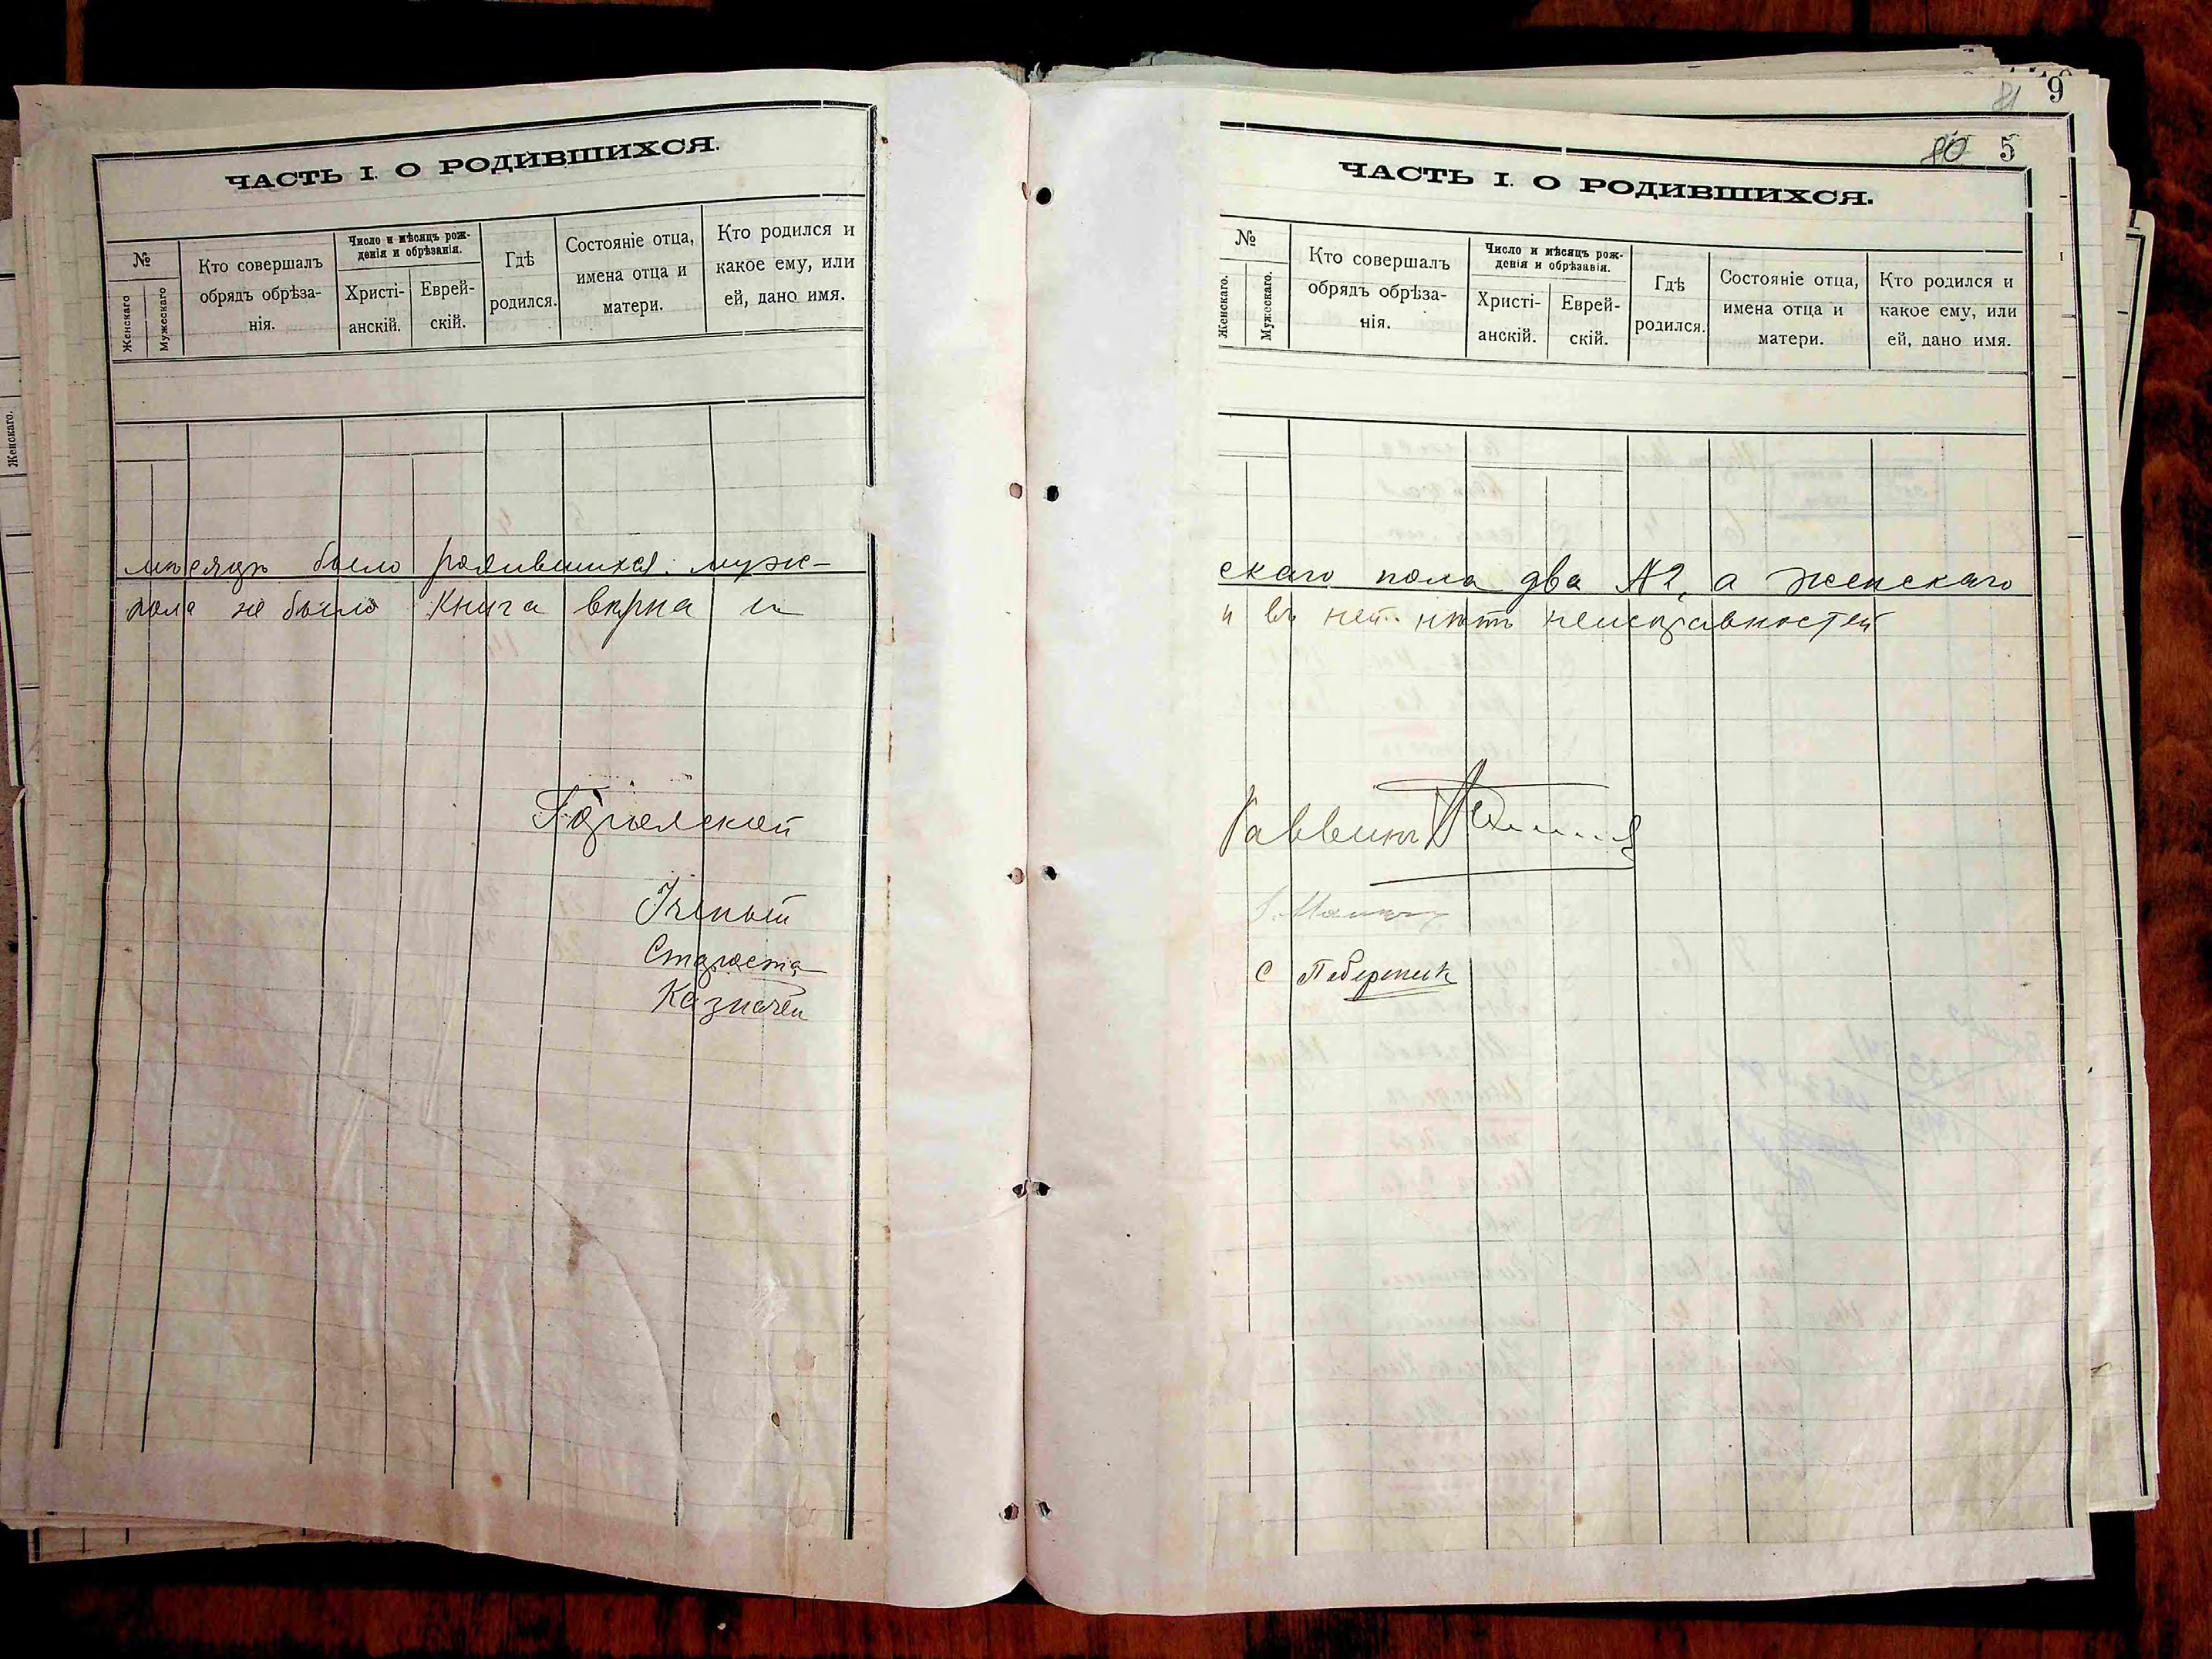 ЧАСТЬ I. О РОДИВШИХСЯ.
№
Женскаго
Мужескаго
Кто совершалъ
обрядъ обрѣза-
нія.
Число и мѣсяцъ рож-
денія и обрѣзанія.
Христі-
анскій.
Еврей-
скій.
Гдѣ
родился.
Состояніе отца,
имена отца и
матери.
Кто родился и
какое ему, или
ей, дано имя.
мѣсяцъ было родившихся: муж-
пола не было Книга вѣрна и
Ученый
Староста
Казначей
Женскаго.
9
80 5
ЧАСТЬ I. О РОДИВШИХСЯ.
№
Женскаго.
Мужескаго.
Кто совершалъ
обрядъ обрѣза-
нія.
Число и мѣсяцъ рож-
денія и обрѣзанія.
Христі-
анскій.
Еврей-
скій.
Гдѣ
родился.
Состояніе отца,
имена отца и
матери.
Кто родился и
какое ему, или
ей, дано имя.
скаго пола два №2, а женскаго
и въ ней нѣтъ неисправностей
Раввинъ